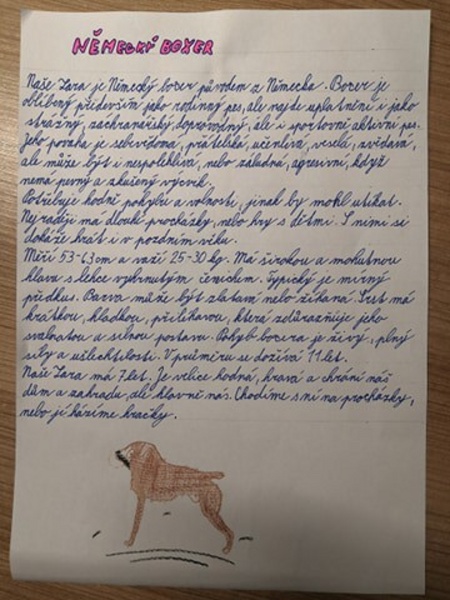 NĚMECKÝ BOXER
Naše Zara je Německý boxer původem z Německa. Boxer je
oblíbený především jako rodinný pes, ale najde uplatnění i jako
strážný, záchranářský, doprovodný, ale i sportovně aktivní pes.
Jeho povaha je sebevědomá, přátelská, učenlivá, veselá, zvídavá,
ale může být i nespolehlivá, nebo záludná, agresivní, když
nemá pevný a zkušený výcvik.
Potřebuje hodně pohybu a volnosti, jinak by mohl utíkat.
Nejraději má dlouhé procházky, nebo hry s dětmi. S nimi si
dokáže hrát i v pozdním věku.
Měří 53-63cm a váží 25-30 kg. Má širokou a mohutnou
hlavu s lehce vyhrnutým čenichem. Typický je mírný
předkus. Barva může být zlatavá nebo žíhaná. Srst má
krátkou, hladkou, přiléhavou, která zdůrazňuje jeho
svalnatou a silnou postavu. Pohyb boxera je živý, plný
síly a ušlechtilosti. V průměru se dožívá 11 let.
Naše Zara má 7 let. Je velice hodná, hravá a chrání náš
dům a zahradu, ale hlavně nás. Chodíme s ní na procházky,
nebo jí házíme hračky.